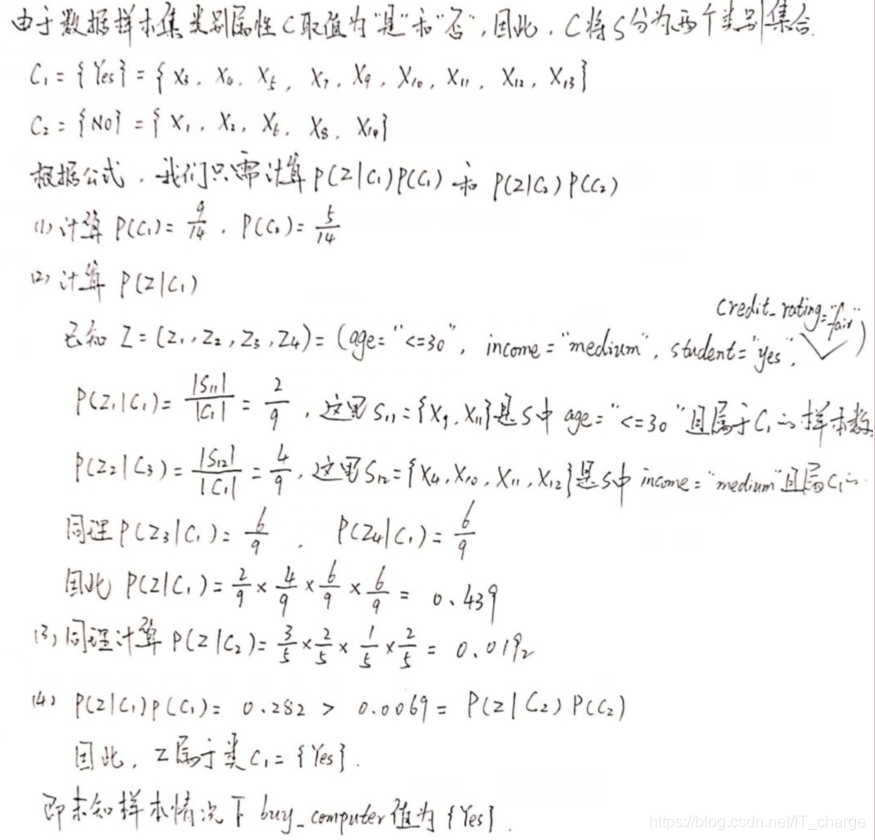 由于数据样本集类别属性C取值为"是"和"否",因此,C将S分为两个类别集合.
C₁={Yes}={X₃, X₄, X₅, X₇, X₉, X₁₀, X₁₁, X₁₂, X₁₃}
C₂={NO}={X₁, X₂, X₆, X₈, X₁₄}
根据公式,我们只需计算P(Z|C₁)P(C₁)和P(Z|C₂)P(C₂)
(1)计算P(C₁)=9/14, P(C₂)=5/14
(2)计算P(Z|C₁)
credit_rating="fair"
已知Z=(Z₁,Z₂,Z₃,Z₄)=(age="<=30", income="medium", student="yes", )
P(Z₁|C₁)=|S₁₁|/|C₁|=2/9,这里S₁₁={X₉,X₁₁}是S中age="<=30"且属于C₁的样本数
P(Z₂|C₃)=|S₁₂|/|C₁|=4/9,这里S₁₂={X₄,X₁₀,X₁₁,X₁₂}是S中income="medium"且属C₁的..
同理P(Z₃|C₁)=6/9, P(Z₄|C₁)=6/9
因此P(Z|C₁)=2/9×4/9×6/9×6/9=0.439
(3)同理计算P(Z|C₂)=3/5×2/5×1/5×2/5=0.0192
(4) P(Z|C₁)P(C₁)=0.282>0.0069=P(Z|C₂)P(C₂)
因此,Z属于类C₁={Yes}.
即未知样本情况下buy_computer值为{Yes}.
https://blog.csdn.net/IT_charge